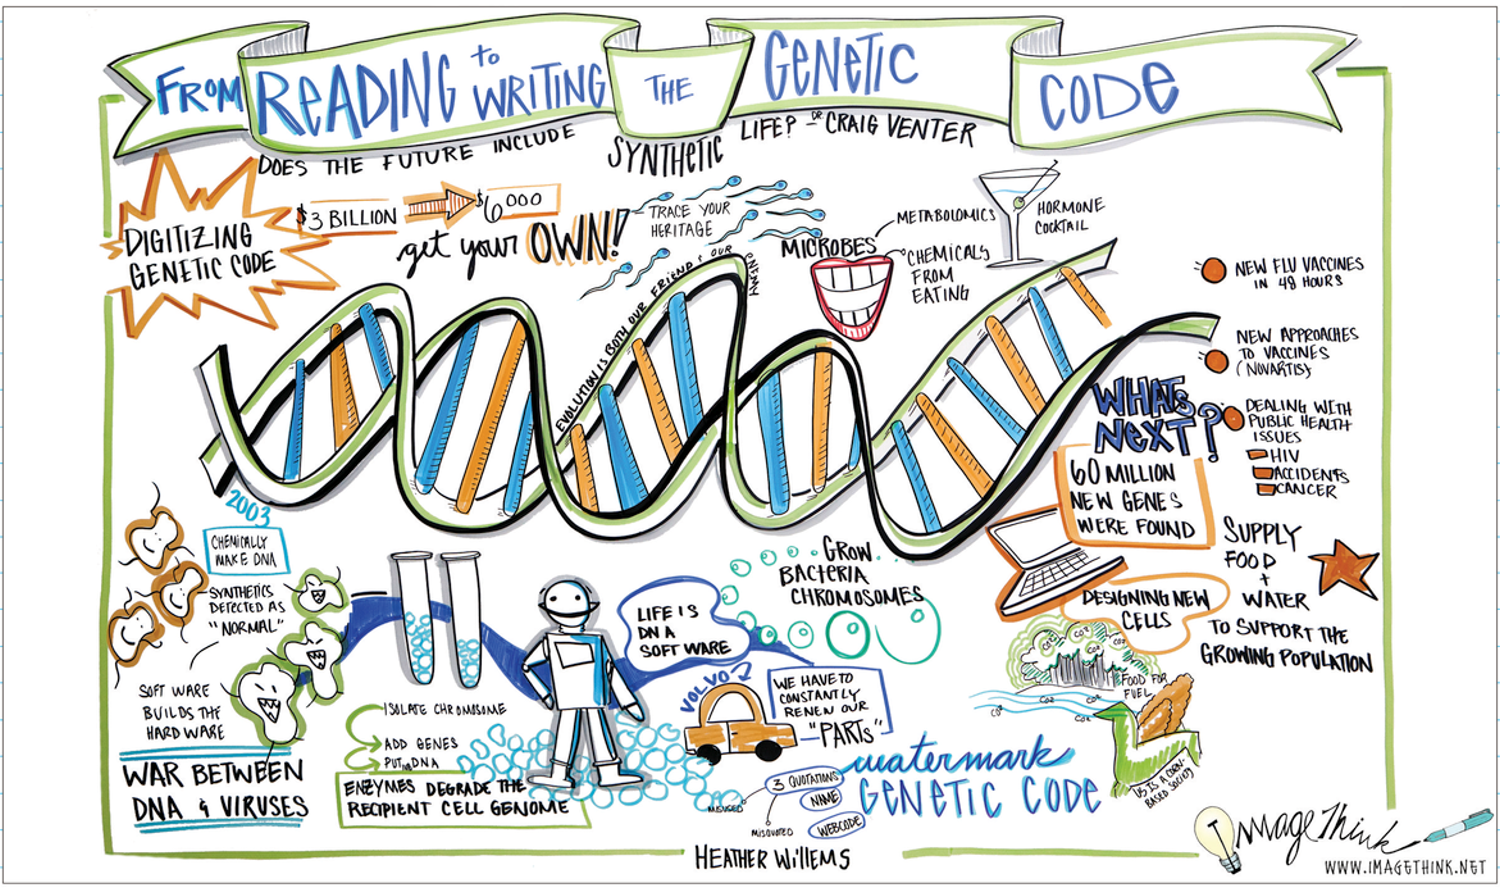 FROM READING to WRITING THE GENETIC CODE
DOES THE FUTURE INCLUDE SYNTHETIC LIFE? - DR. CRAIG VENTER
DIGITIZING
GENETIC CODE
$3 BILLION
$6000
get your OWN!
TRACE YOUR
HERITAGE
EVOLUTION IS BOTH OUR FRIEND & OUR ENEMY
MICROBES
METABOLOMICS
CHEMICALS
FROM
EATING
HORMONE
COCKTAIL
NEW FLU VACCINES
IN 48 HOURS
NEW APPROACHES
TO VACCINES
(NOVARTIS)
WHATS
NEXT?
DEALING WITH
PUBLIC HEALTH
ISSUES
HIV
ACCIDENTS
CANCER
60 MILLION
NEW GENES
WERE FOUND
SUPPLY
FOOD
+
WATER
TO SUPPORT THE
GROWING POPULATION
DESIGNING NEW
CELLS
2003
CHEMICALLY
MAKE DNA
SYNTHETICS
DETECTED AS
"NORMAL"
SOFT WARE
BUILDS THE
HARD WARE
WAR BETWEEN
DNA & VIRUSES
ISOLATE CHROMOSOME
ADD GENES
PUT DNA
ENZYMES DEGRADE THE
RECIPIENT CELL GENOME
LIFE IS
DNA
SOFT WARE
GROW
BACTERIA
CHROMOSOMES
VOLVO
WE HAVE TO
CONSTANTLY
RENEW OUR
"PARTS"
CO2
CO2
CO2
CO2
CO2
CO2
CO2
CO2
FOOD FOR
FUEL
US IS A CORN-
BASED SOCIETY
watermark
GENETIC CODE
3 QUOTATIONS
MISUSED
NAME
MISQUOTED
WEBCODE
HEATHER WILLEMS
ImageThink
WWW.IMAGETHINK.NET